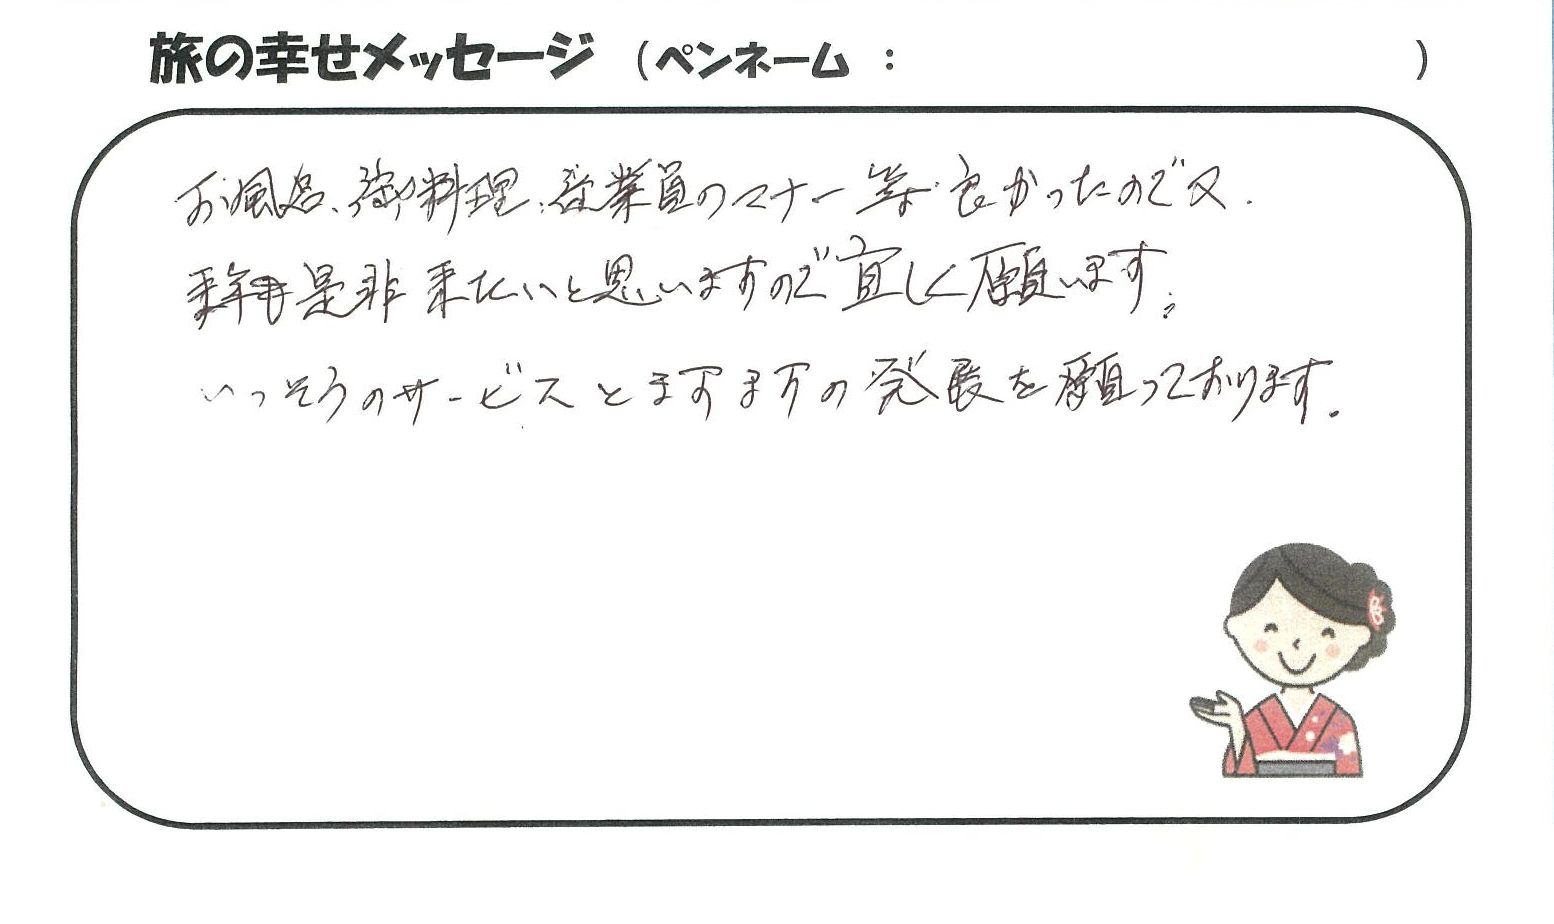 旅の幸せメッセージ (ペンネーム : )
お風呂、御料理、従業員のマナー等良かったので又、
来年も是非来たいと思いますので宜しく願います。
いっそうのサービスとますますの発展を願っております。